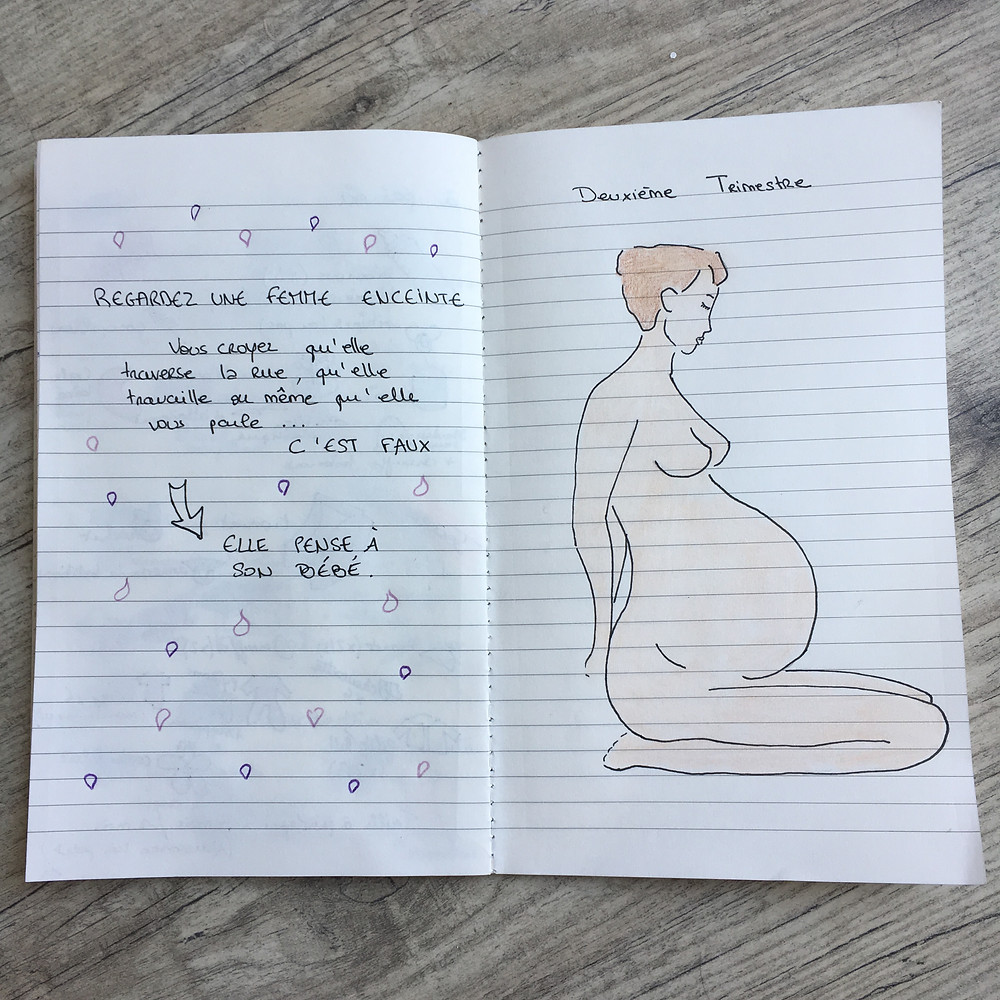 REGARDEZ UNE FEMME ENCEINTE
Vous croyez qu'elle
traverse la rue, qu'elle
travaille ou même qu'elle
vous parle ...
C'EST FAUX
ELLE PENSE À
SON BÉBÉ.
Deuxième Trimestre